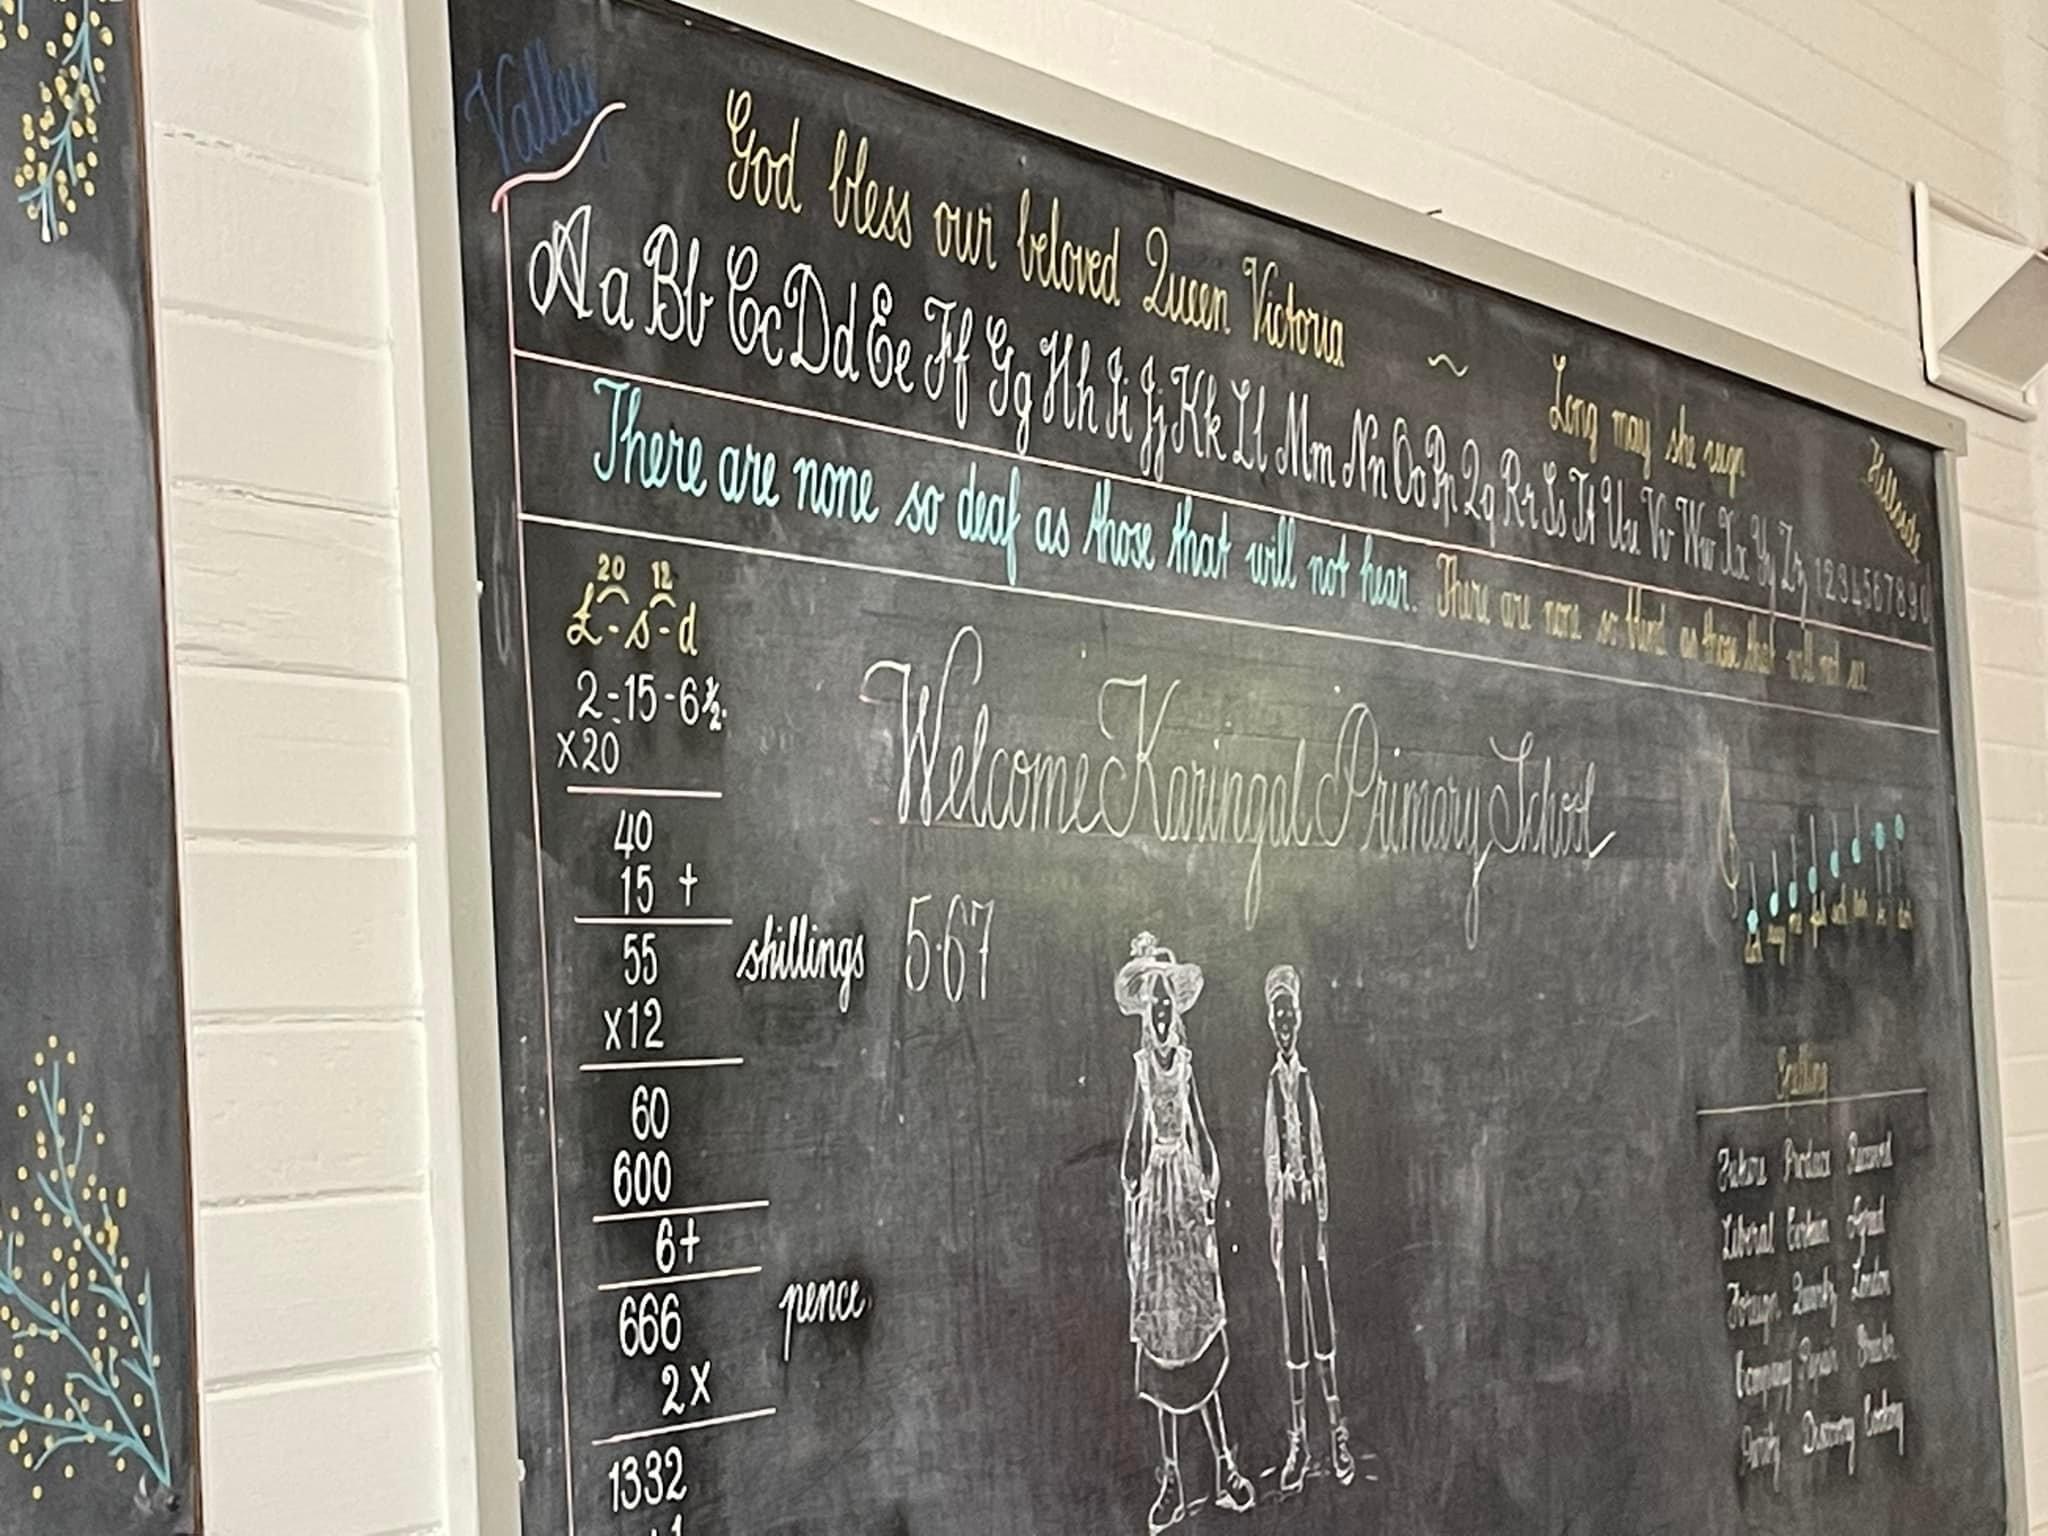 Valley
God bless our beloved Queen Victoria ~ Long may she reign
Hillside
Aa Bb Cc Dd Ee Ff Gg Hh Ii Jj Kk Ll Mm Nn Oo Pp Qq Rr Ss Tt Uu Vv Ww Xx Yy Zz 1234567890
There are none so deaf as those that will not hear. There are none so blind as those that will not see
20 12
£-s-d
2-15-6½.
x20
40
15 +
55 shillings
x12
60
600
6+
666 pence
2x
1332
+1
Welcome Karingal Primary School
5·67
Spelling
Future Produce Record
Liberal
Foreign London
Company Paper
Discovery